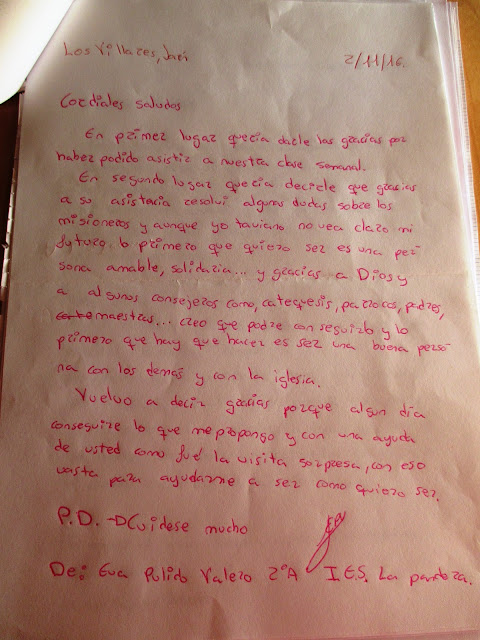 Los Villares, Jaén
2/11/16.
Cordiales saludos
En primer lugar queria darle las gracias por
haber podido asistir a nuestra clase semanal.
En segundo lugar queria decirle que gracias
a su asistencia resolvi algunas dudas sobre los
misioneros y aunque yo taviano no vea claro mi
futuro lo primero que quiero ser es una per
sona amable, solidaria... y gracias a Dios y
a algunos consejeros como, catequesis, parrocos, padres,
maestras... creo que podre conseguirlo y lo
primero que hay que hacer es ser una buena perso
na con los demas y con la iglesia.
Vuelvo a decir gracias porque algun día
conseguire lo que me propongo y con una ayuda
de usted como fué la visita sorpresa, con eso
vasta para ayudarme a ser como quiero ser.
P.D. → Cuidese mucho
De: Eva Pulido Valero 2ºA I.E.S. La pandera.